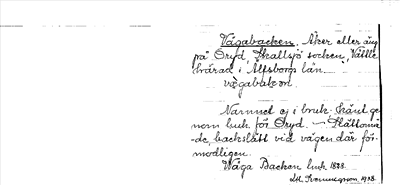 Vågabacken. Åker eller äng
på Öryd, Skallsjö socken, Vättle
härad i Älfsborgs län.
vɑ̊gabakɘn
Namnet ej i bruk. Känt ge
nom huk. för Öryd. — Slättomå-
de, backslätt vid vägen där för-
modligen.
Våga Backen huk. 1828.
1928.